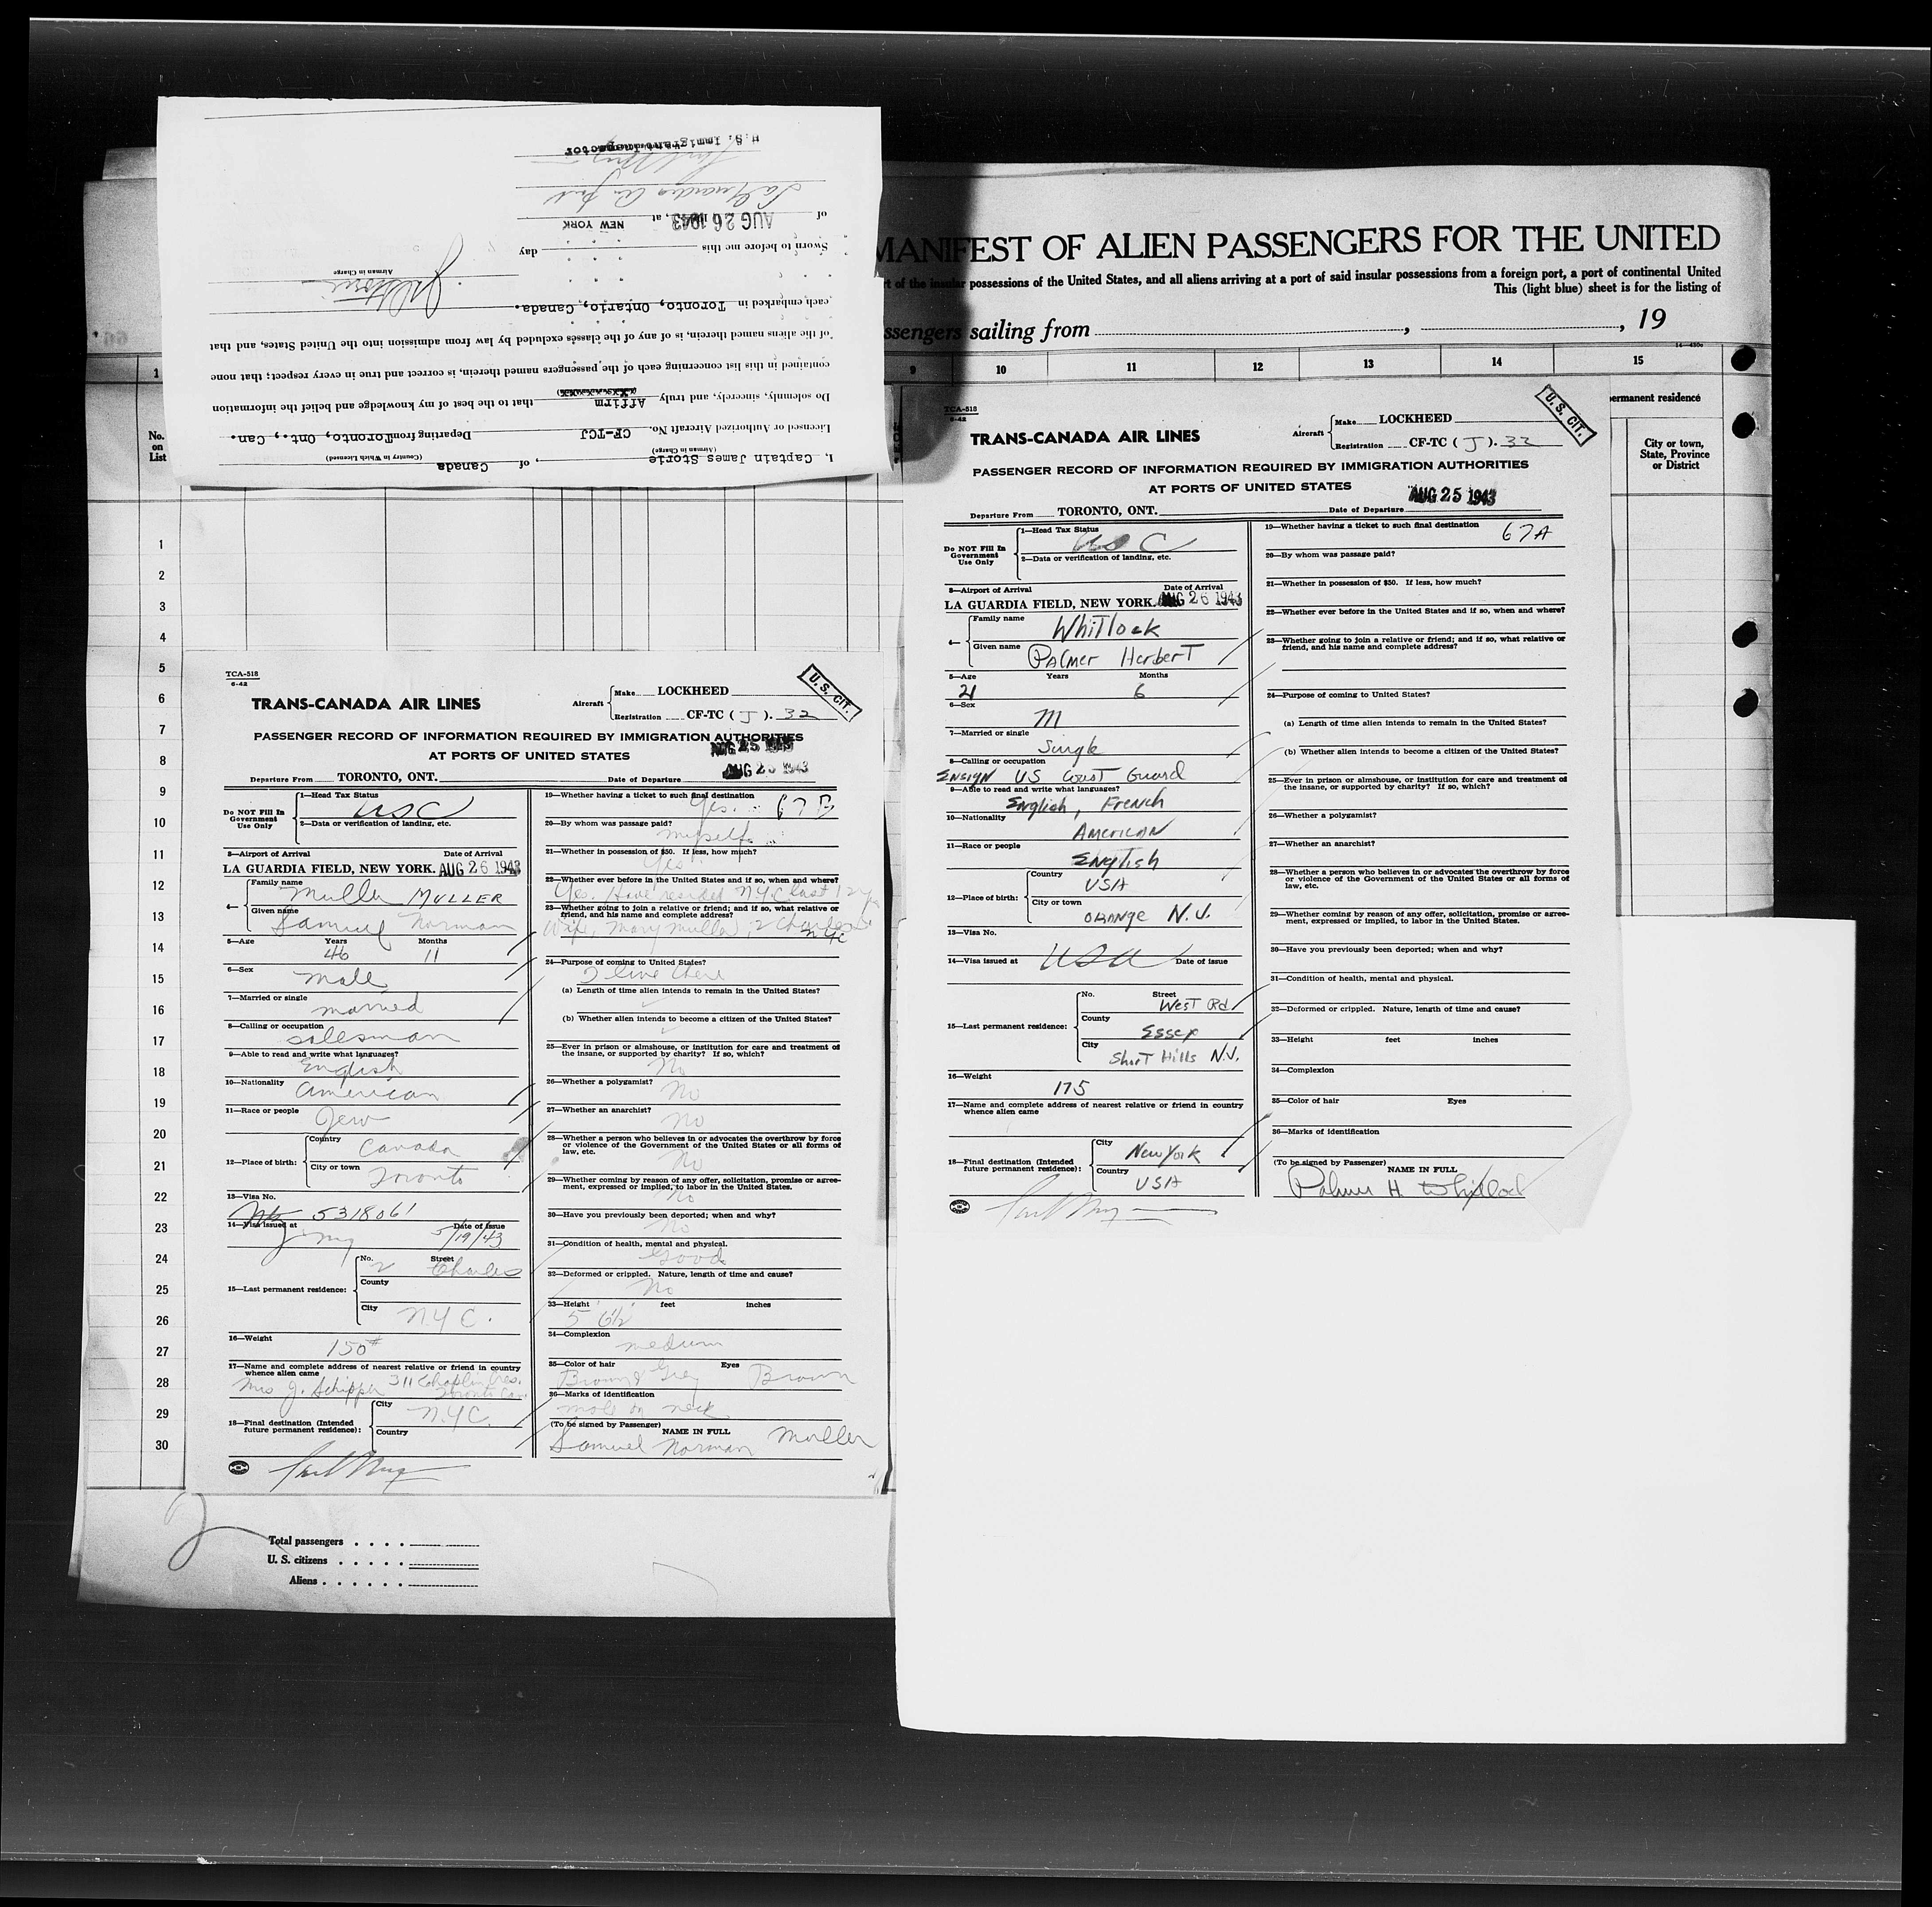 I, Captain James Storie , of Canada
(Airman in Charge) (Country in Which Licensed)
Licensed or Authorized Aircraft No. CF-TCJ Departing from Toronto, Ont., Can.
Do solemnly, sincerely, and truly Affirm that to the best of my knowledge and belief the information
contained in this list concerning each of the passengers named therein, is correct and true in every respect; that none
of the aliens named therein, is of any of the classes excluded by law from admission into the United States, and that
each embarked in Toronto, Ontario, Canada.
Airman in Charge
Sworn to before me this day
of AUG 26 1943, at NEW YORK
U.S. Immigrant Inspector
MANIFEST OF ALIEN PASSENGERS FOR THE UNITED
rt of the insular possessions of the United States, and all aliens arriving at a port of said insular possessions from a foreign port, a port of continental United
This (light blue) sheet is for the listing of
ssengers sailing from , , 19
1 9 10 11 12 13 14 15
No. on List
ermanent residence
City or town, State, Province or District
1
2
3
4
5
6
7
8
9
10
11
12
13
14
15
16
17
18
19
20
21
22
23
24
25
26
27
28
29
30
TCA-518
6-42
U.S. CIT.
TRANS-CANADA AIR LINES
Aircraft Make LOCKHEED
Registration CF-TC ( J ). 32
PASSENGER RECORD OF INFORMATION REQUIRED BY IMMIGRATION AUTHORITIES
AT PORTS OF UNITED STATES
AUG 25 1943
Departure From TORONTO, ONT. Date of Departure AUG 25 1943
Do NOT Fill In Government Use Only
1—Head Tax Status
USC
2—Data or verification of landing, etc.
3—Airport of Arrival Date of Arrival
LA GUARDIA FIELD, NEW YORK. AUG 26 1943
4— Family name Muller MULLER
Given name Samuel Norman
5—Age Years 46 Months 11
6—Sex Male
7—Married or single married
8—Calling or occupation
salesman
9—Able to read and write what languages?
English
10—Nationality American
11—Race or people Jew
12—Place of birth: Country Canada
City or town Toronto
13—Visa No.
5318061
14—Visa issued at Date of issue
5/19/43
15—Last permanent residence: No. 2 Street Charles
County
City N.Y.C.
16—Weight 150#
17—Name and complete address of nearest relative or friend in country whence alien came
Mrs J. Schipper 311 Chaplin Cres. Toronto Can.
18—Final destination (Intended future permanent residence): City N.Y.C.
Country
19—Whether having a ticket to such final destination
Yes. 67B
20—By whom was passage paid?
myself
21—Whether in possession of $50. If less, how much?
Yes
22—Whether ever before in the United States and if so, when and where?
Yes. Have resided N.Y.C last 12 yr
23—Whether going to join a relative or friend; and if so, what relative or friend, and his name and complete address?
Wife, Mary Muller, 2 Charles St NYC
24—Purpose of coming to United States?
I live there
(a) Length of time alien intends to remain in the United States?
(b) Whether alien intends to become a citizen of the United States?
25—Ever in prison or almshouse, or institution for care and treatment of the insane, or supported by charity? If so, which?
No
26—Whether a polygamist? No
27—Whether an anarchist? No
28—Whether a person who believes in or advocates the overthrow by force or violence of the Government of the United States or all forms of law, etc.
No
29—Whether coming by reason of any offer, solicitation, promise or agreement, expressed or implied, to labor in the United States.
No
30—Have you previously been deported; when and why?
No
31—Condition of health, mental and physical.
Good
32—Deformed or crippled. Nature, length of time and cause?
No
33—Height feet inches
5' 6½
34—Complexion
medium
35—Color of hair Eyes
Brown & Grey Brown
36—Marks of identification
mole on neck
(To be signed by Passenger) NAME IN FULL
Samuel Norman Muller
Total passengers
U. S. citizens
Aliens
TCA-518
6-42
U.S. CIT.
TRANS-CANADA AIR LINES
Aircraft Make LOCKHEED
Registration CF-TC ( J ). 32
PASSENGER RECORD OF INFORMATION REQUIRED BY IMMIGRATION AUTHORITIES
AT PORTS OF UNITED STATES
Departure From TORONTO, ONT. Date of Departure AUG 25 1943
Do NOT Fill In Government Use Only
1—Head Tax Status
USC
2—Data or verification of landing, etc.
3—Airport of Arrival Date of Arrival
LA GUARDIA FIELD, NEW YORK. AUG 26 1943
4— Family name Whitlock
Given name PAlmer HerberT
5—Age Years 21 Months 6
6—Sex M
7—Married or single Single
8—Calling or occupation
ENSIGN US Coast Guard
9—Able to read and write what languages?
English, French
10—Nationality AMERICAN
11—Race or people English
12—Place of birth: Country USA
City or town ORANGE N.J.
13—Visa No.
14—Visa issued at USA Date of issue
15—Last permanent residence: No. Street West Rd
County Essex
City Short Hills N.J.
16—Weight 175
17—Name and complete address of nearest relative or friend in country whence alien came
18—Final destination (Intended future permanent residence): City New York
Country USA
19—Whether having a ticket to such final destination 67A
20—By whom was passage paid?
21—Whether in possession of $50. If less, how much?
22—Whether ever before in the United States and if so, when and where?
23—Whether going to join a relative or friend; and if so, what relative or friend, and his name and complete address?
24—Purpose of coming to United States?
(a) Length of time alien intends to remain in the United States?
(b) Whether alien intends to become a citizen of the United States?
25—Ever in prison or almshouse, or institution for care and treatment of the insane, or supported by charity? If so, which?
26—Whether a polygamist?
27—Whether an anarchist?
28—Whether a person who believes in or advocates the overthrow by force or violence of the Government of the United States or all forms of law, etc.
29—Whether coming by reason of any offer, solicitation, promise or agreement, expressed or implied, to labor in the United States.
30—Have you previously been deported; when and why?
31—Condition of health, mental and physical.
32—Deformed or crippled. Nature, length of time and cause?
33—Height feet inches
34—Complexion
35—Color of hair Eyes
36—Marks of identification
(To be signed by Passenger) NAME IN FULL
Palmer H. Whitlock